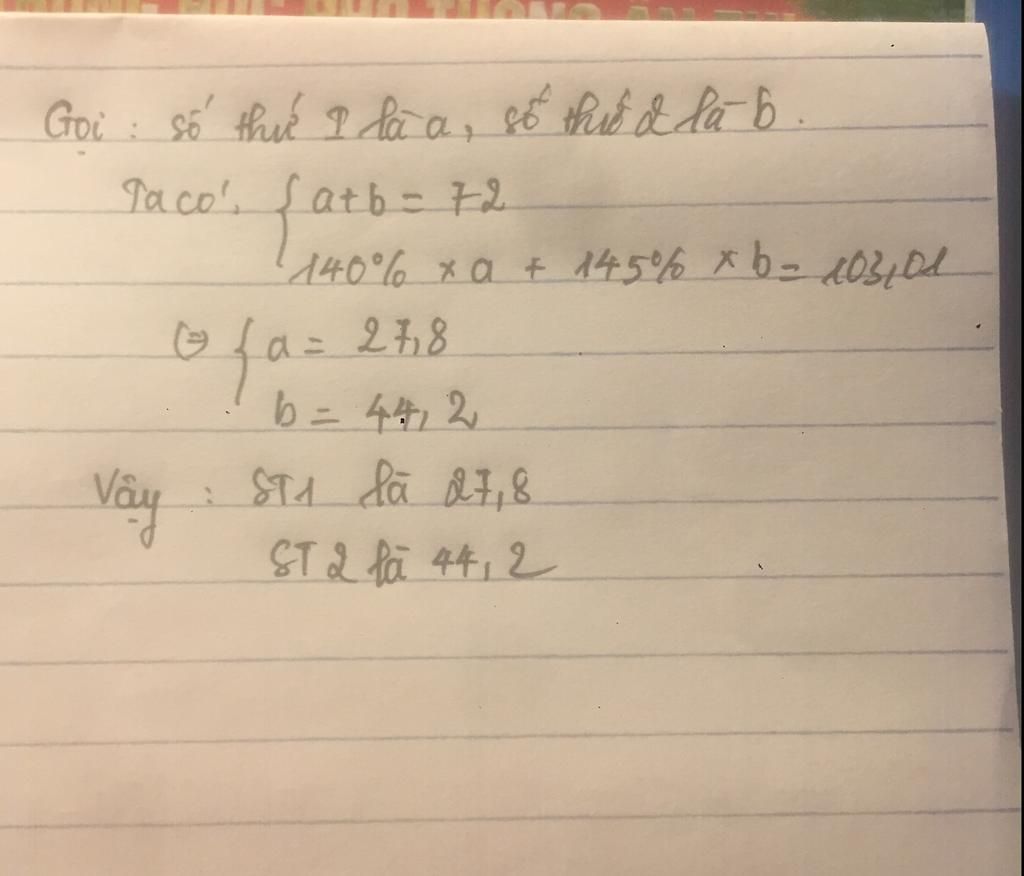 Gọi : số thứ 1 là a, số thứ 2 là b .
Ta có : { a+b = 72
140% x a + 145% x b = 103,01
⇔ { a = 27,8
b = 44,2
Vậy : ST1 là 27,8
ST 2 là 44,2